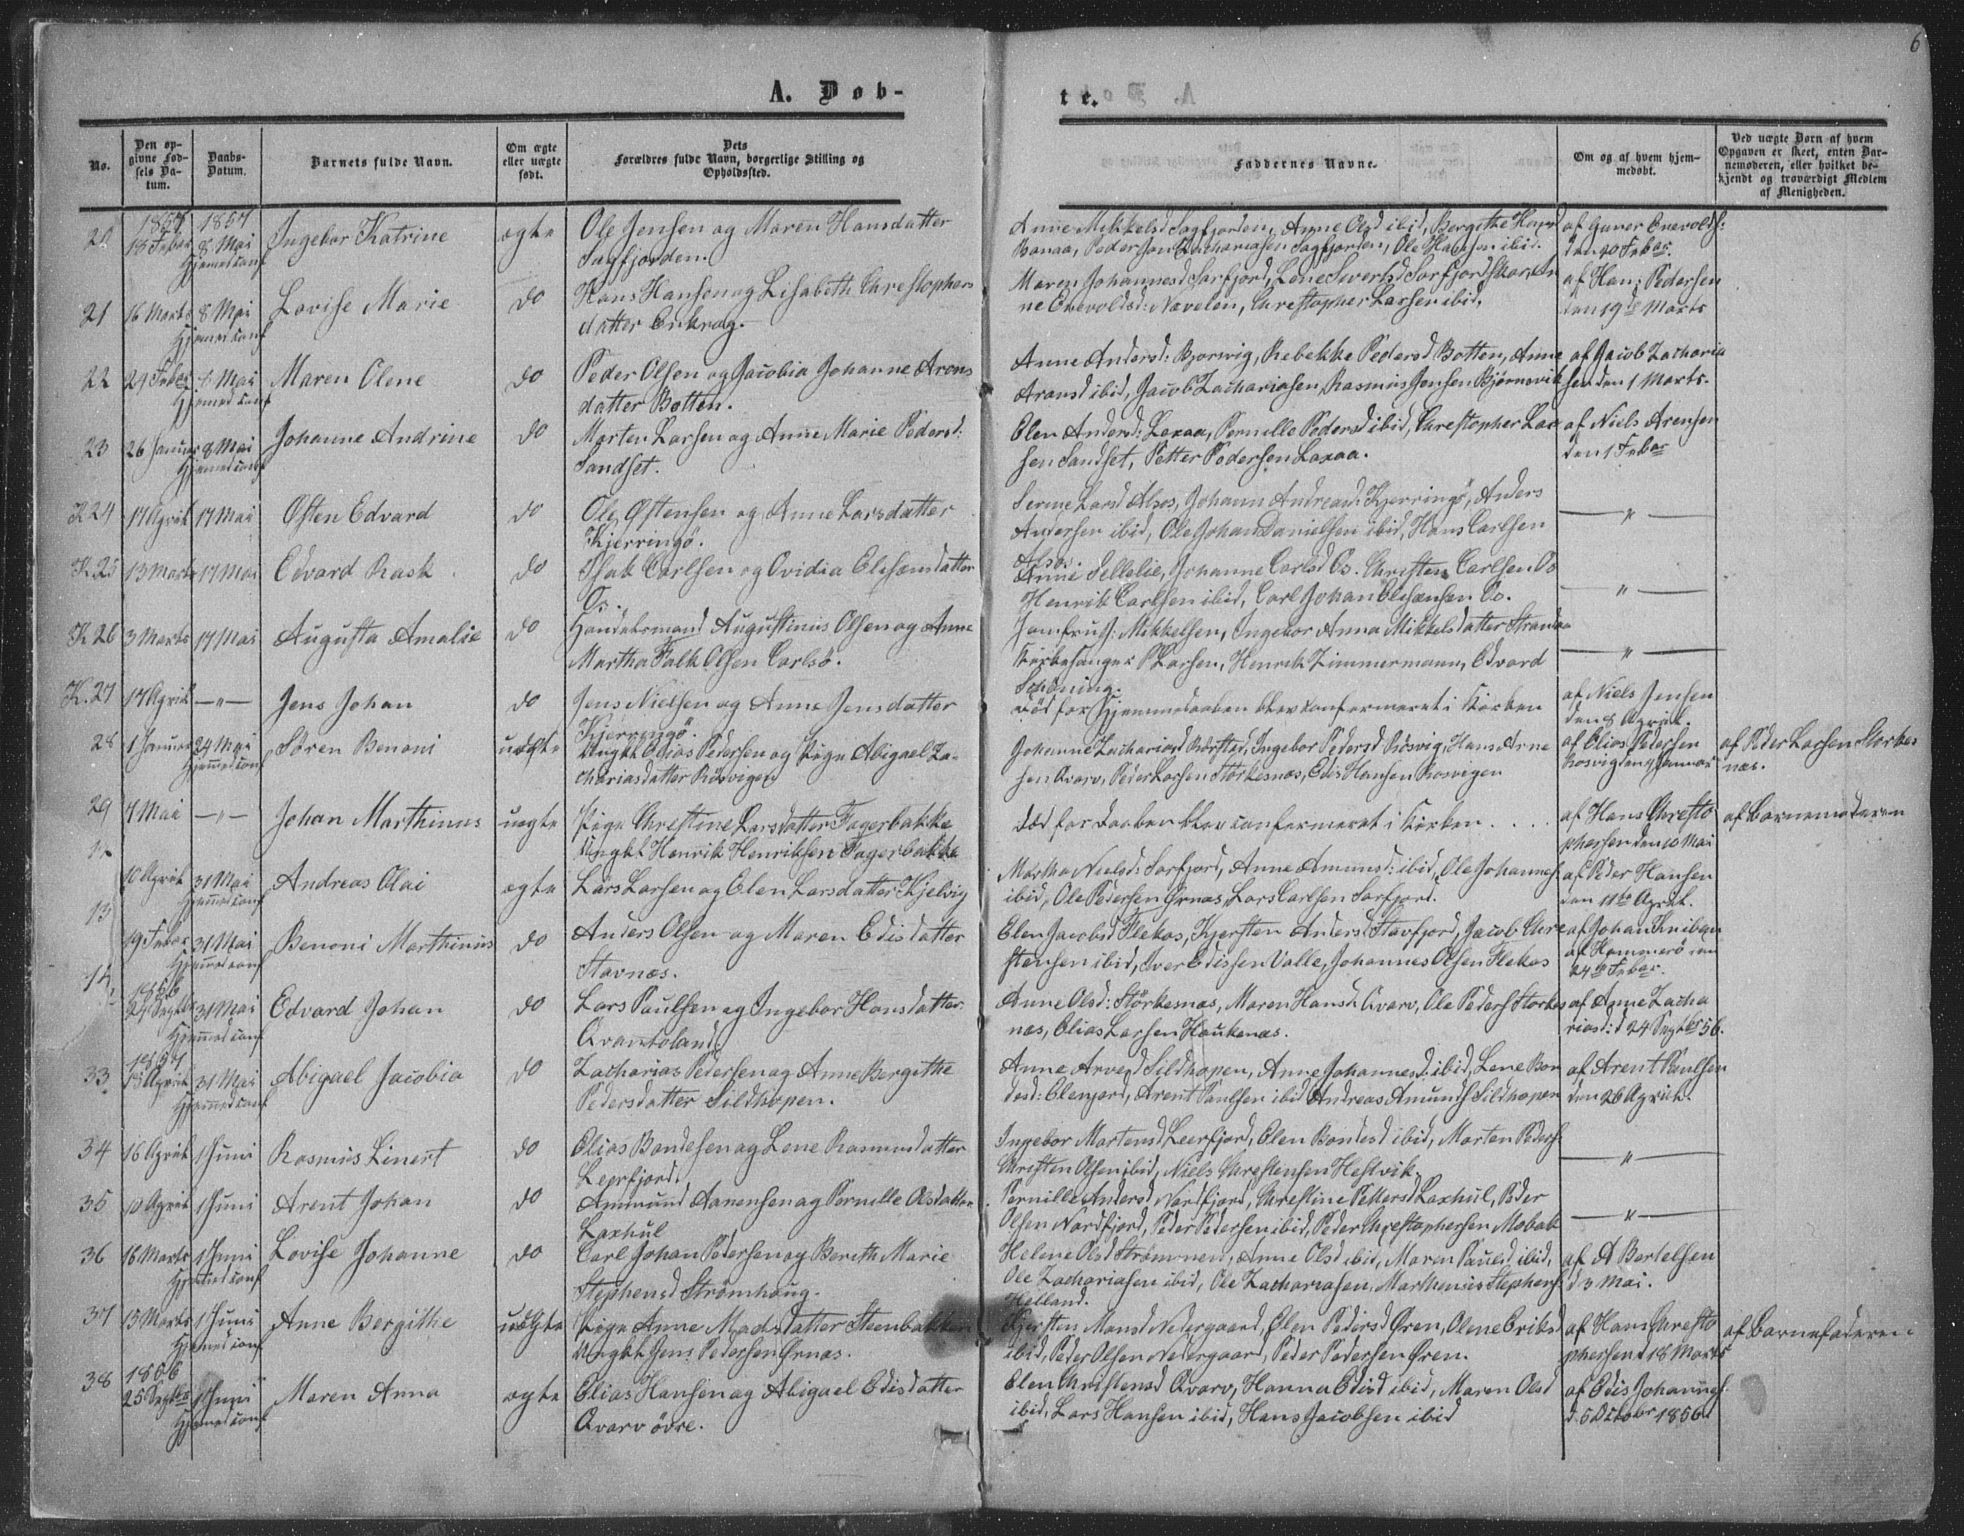 6
A. Døb-
te.
No.
Den op-
givne Fød-
sels Da-
tum.
Daabs-
Datum.
Barnets fulde Navn.
Om ægte
eller uægte
født.
Dets
Forældres fulde Navn, borgerlige Stilling og
Opholdssted.
Faddernes Navne.
Om og af hvem hjem-
medøbt.
Ved uægte Børn af hvem
Opgaven er skeet, enten Bar-
nemoderen, eller hvilket be-
kjendt og troværdigt Medlem
af Menigheden.
1857 1857
20 18 Febar 8 Mai Ingebor Katrine ægte Ole Jensen og Maren Hansdatter
Hjemed conf Sagfjorden.
Anne Mikkelsd Sagfjorden, Anne Olsd ibid, Bergithe Hansd
Bonaa, Peder Jan Zachariasen Sagfjorden, Ole Hansen ibid.
af Gaver Enevolds:
den 20 Febar.
21 16 Marts 8 Mai Lovise Marie do Hans Hansen og Lisabeth Chrestophers
Hjemed conf datter Enkrog.
Maren Johannesd Sarfjord, Lene Sivertsd Sarfjordskar, An
ne Enevoldsd: Navelen, Chrestopher Larsen ibid.
af Hen: Pedersen
den 19de Marts
22 24 Febar 8 Mai Maren Olene do Peder Olsen og Jacobia Johanne Arons
Hjemed conf datter Botten.
Anne Andersd: Bjorvig, Rebekke Pedersd Botten, Anne
Aronsd ibid, Jacob Zachariasen, Rasmus Jensen Bjørnsvik
af Jacob Zacharia
sen den 1 Marts.
23 26 Januar 8 Mai Johanne Andrine do Morten Larsen og Anne Marie Pedersd:
Hjemed conf Sandset.
Elen Andersd: Laxaa, Pernille Pedersd ibid, Chrestopher Lar
sen Sandset, Petter Pedersen Laxaa.
af Niels Arensen
den 1 Febar
K 24 17 April 17 Mai Østen Edvard do Ole Østensen og Anne Larsdatter
Kjerringø.
Serine Larsd Alsos, Johann Andreasd: Kjerringø, Anders
Andersen ibid, Ole Johan Danielsen ibid, Hans Carlsen
Alsos.
— " —
K. 25 13 Marts 17 Mai Edvard Rask do Isak Carlsen og Ovidia Elesæusdatter
Os.
Anne Sellelie, Johanne Carlsd Os. Christen Carlsen Os
Henrik Carlsen ibid, Carl Johan Elesæusen Os.
— " —
K 26 3 Marts 17 Mai Augusta Amalie do Handelsmand Augustinus Olsen og Anne
Martha Falk Olsen Carlsø.
Jomfru J: Mikkelsen, Ingebor Anna Mikkelsdatter Strandaa
Kirkesanger P Larsen, Henrik Zimmermann, Edvard
Schøning.
— " —
K. 27 17 April — " — Jens Johan do Jens Nielsen og Anne Jensdatter
Kjerringø.
død før Hjemmedaaben blev conformeret i Kirken
af Niels Jensen
den 8 April.
28 1 Januar 24 Mai Søren Benoni uægte Ungkl Elias Pedersen og Pige Abigael Za-
Hjemmed conf chariasdatter Røsvigen
Johanne Zachariasd Rørsted, Ingebor Pedersd Røsvig, Hans Arne
sen Qvarv, Peder Larsen Storkesnæs, Edis Hansen Røsvigen
af Elias Pedersen
Rosvig den 9 Januar
af Peder Larsen Storkes
næs.
29 7 Mai — " — Johan Marthinus uægte Pige Chrestine Larsdatter Fagerbakke
Ungkl Henrik Henriksen Fagerbakke
død før Daaben blev conformeret i Kirken . . . .
af Hans Chresto
phersen den 10 Mai
af Barnemoderen
10 April 31 Mai Andreas Olai ægte Lars Larsen og Elen Larsdatter Kjelvig
Hjemmed conf
Martha Nielsd: Sarfjord, Anne Amunsd: ibid, Ole Johannes
ibid, Ole Pedersen Ørnæs, Lars Carlsen Sarfjord.
af Peder Hansen
den 11te April.
13
19 Febar 31 Mai Benoni Marthinus do Anders Olsen og Maren Edisdatter
Hjemmed conf Stavnæs.
Elen Jacobsd Flekas, Kjersten Andersd Stavfjord, Jacob Chre
stensen ibid, Iver Edissen Valle, Johannes Olsen Flekas
af Johan Kniben
af Hammerø den
24de Febar.
14
1856
24 Septbr 31 Mai Edvard Johan do Lars Paulsen og Ingebor Hansdatter
Hjemmed conf Qvantoland
Anne Olsd: Störkesnæs, Maren Hansd: Qvarv, Ole Peders Storkes
næs, Elias Larsen Haukenæs.
af Anne Zacha
riasd: d 24 Septbr 56.
1857
33 18 April 31 Mai Abigael Jacobia do Zacharias Pedersen og Anne Bergithe
Hjemmed conf Pedersdatter Sildhopen.
Anne Arved Sildhopen, Anne Johannesd: ibid, Lene Bon
desd: Elenjord, Arent Paulsen ibid Andreas Amunds Sildhopen
af Arent Paulsen
den 26 April.
34 16 April 1 Juni Rasmus Linert do Elias Bondesen og Lene Rasmusdatter
Leerfjord.
Ingebor Martensd Leerfjord, Elen Bondesd ibid, Morten Peders
Christen Olsen ibid, Niels Chrestensen Hestvik.
— " —
35 10 April 1 Juni Arent Johan do Ammund Aanensen og Pernille Olsdatter
Laxhul
Pernille Andersd Nordfjord, Chrestine Pettersd Laxhul, Peder
Olsen Nordfjord, Peder Pedersen ibid, Peder Chrestophersen Mobak
— " —
36 16 Marts 1 Juni Lovise Johanne do Carl Johan Pedersen og Bereth Marie
Hjemed conf Stephensd Strømhaug.
Helene Olsd Strømmen, Anne Olsd ibid, Maren Paulsd ibid,
Ole Zachariasen ibid, Ole Zachariasen, Marthenius Stephens
Helland.
af A Bertelsen
d 3 Mai.
37 15 Marts 1 Juni Anne Bergithe uægte Pige Anne Madsdatter Steenbakken
Hjemed conf Ungkl Jens Pedersen Ørnæs.
Kjersten Monsd Nedergaard, Elen Pedersd Øren, Olene Eriksd
ibid, Peder Olsen Nedergaard, Peder Pedersen Øren.
af Hans Chresto
phersen d 18 Marts
af Barnefaderen
1856
38 25 Septbr 1 Juni Maren Anna ægte Elias Hansen og Abigael Edisdatter
Hjemed conf Qvarv øvre.
Elen Christensd Qvarv, Hanna Edisd ibid, Maren Olsd
ibid, Lars Hansen ibid, Hans Jacobsen ibid
af Edis Johannes
d. 5 Octobr 1856